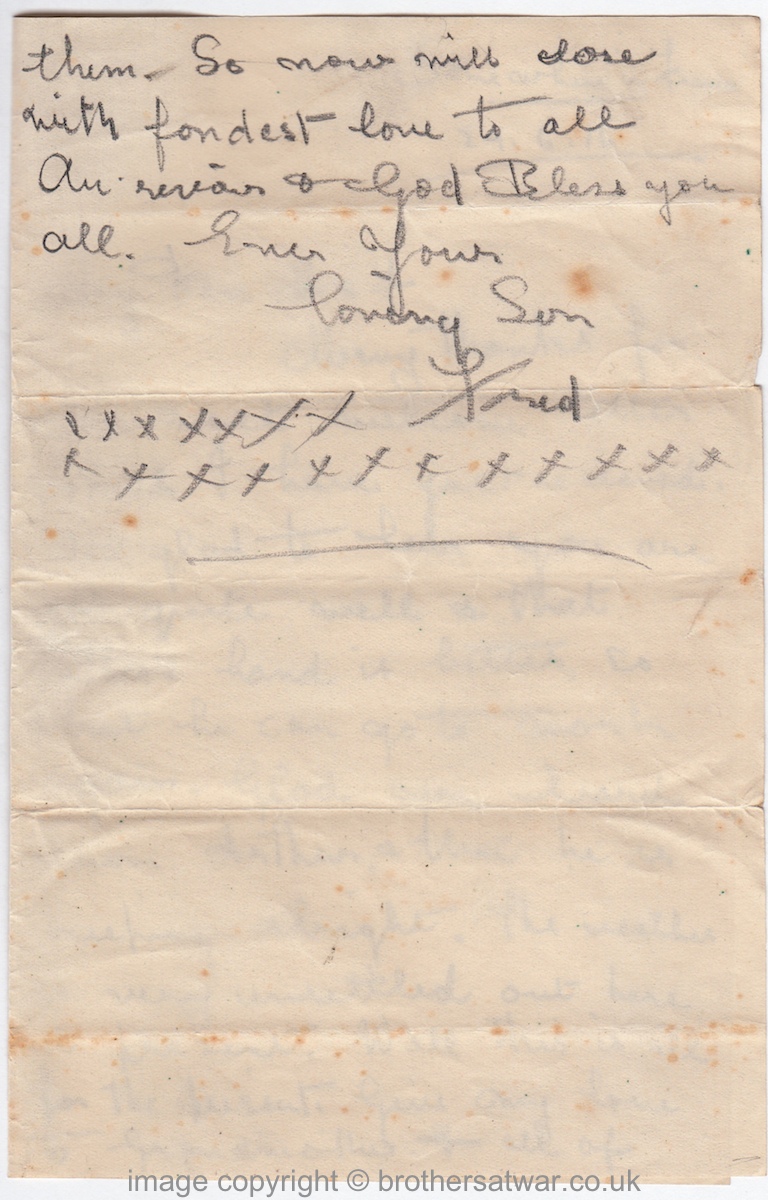 them. So now will close
with fondest love to all
Au revoir & God Bless you
all. Ever Your
loving Son
Fred
x x x x x x x
x x x x x x x x x x x x
image copyright © brothersatwar.co.uk